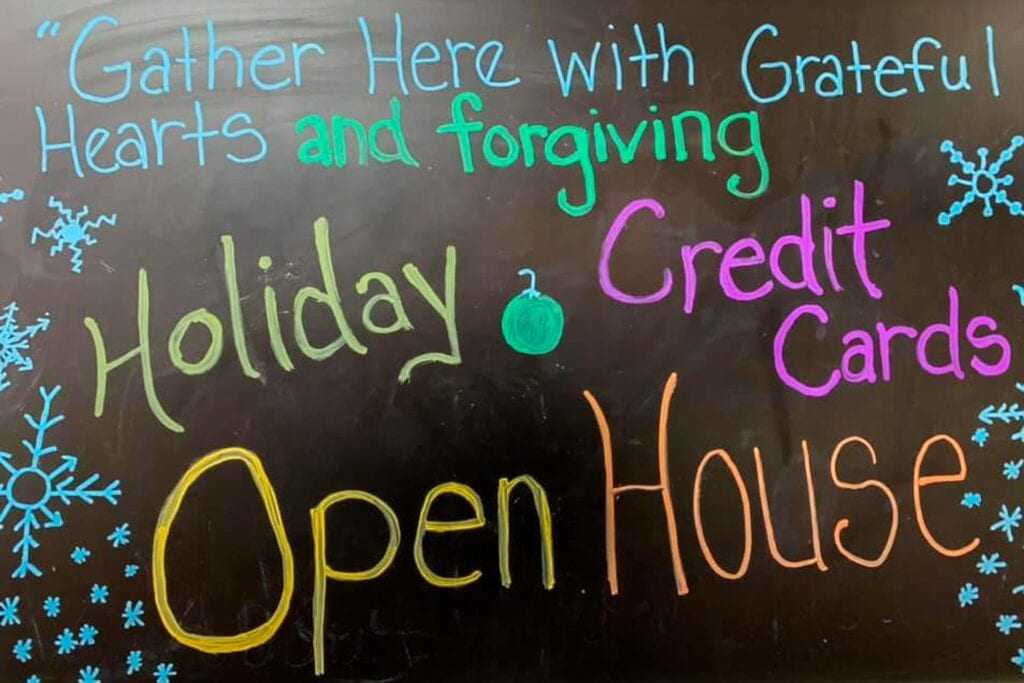 "Gather Here with Grateful
Hearts and forgiving
Credit
Cards
Holiday
Open House